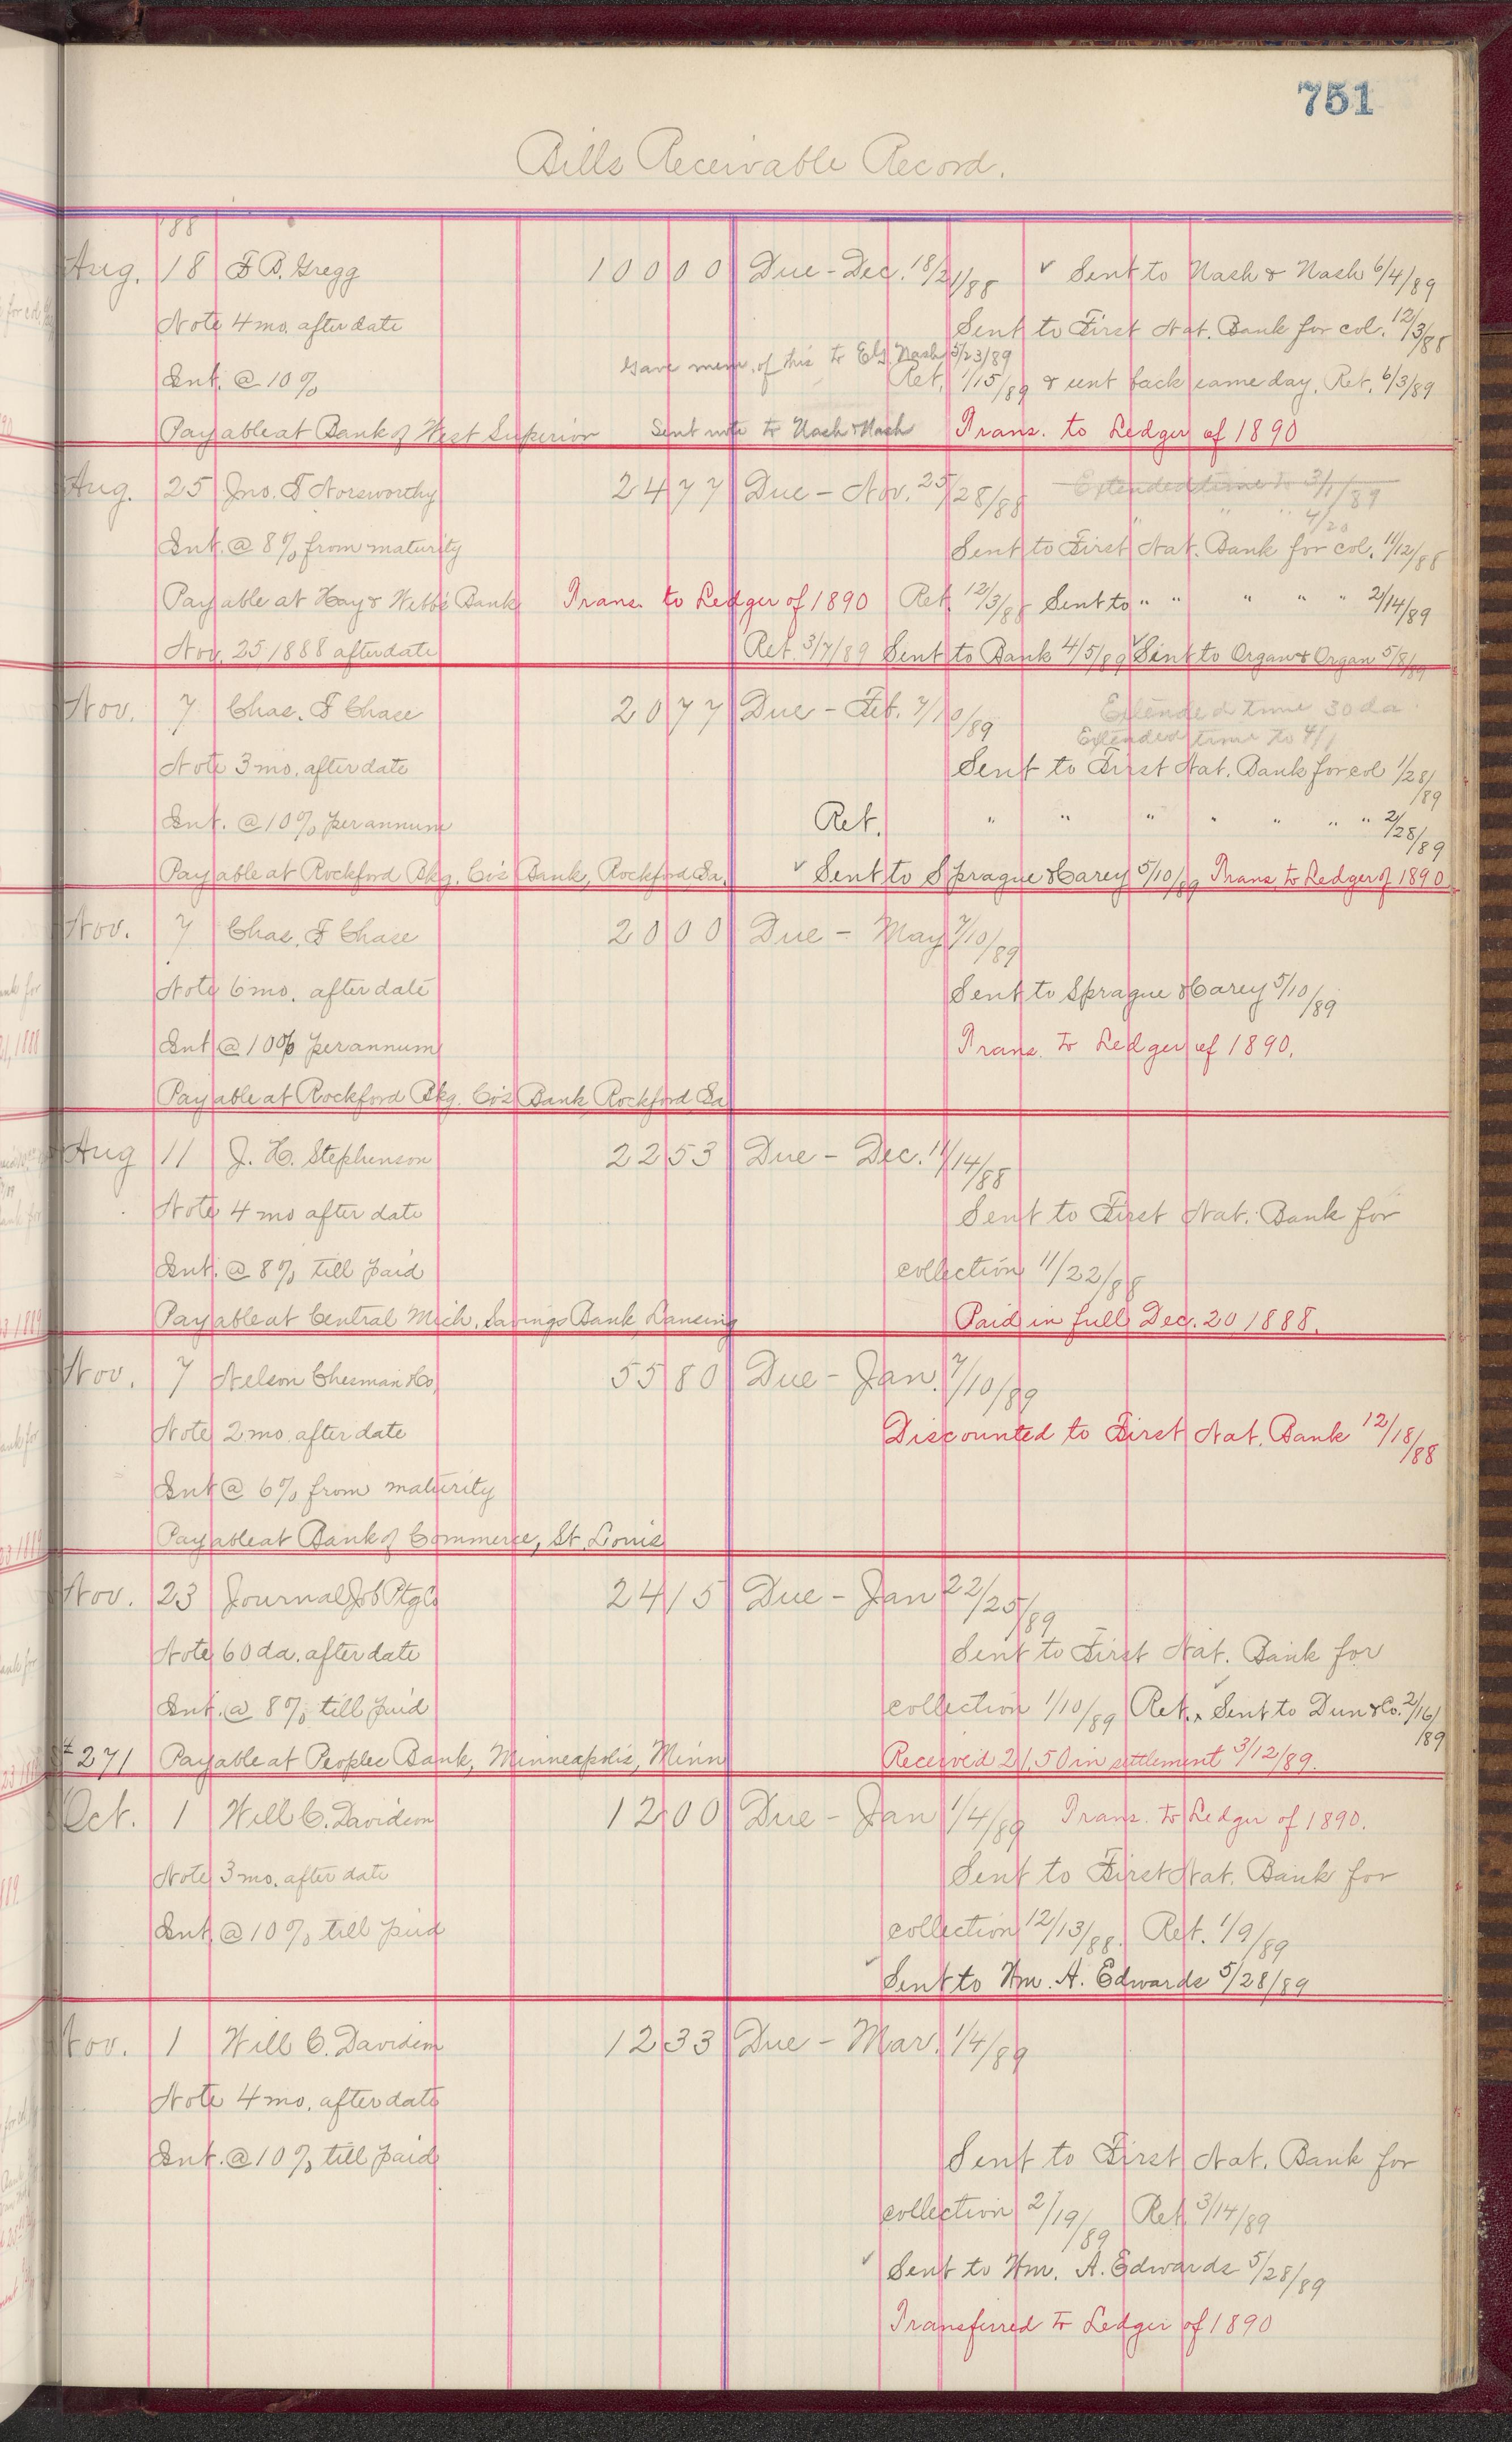 751
Bills Receivable Record.
'88
Aug. 18 F B. Gregg 100 00 Due - Dec. 18/21/88 ✓ Sent to Nash & Nash 6/4/89
Note 4 mo. after date Sent to First Nat. Bank for col. 12/3/88
Gave mem. of this to E G Nash 5/23/89
Int. @ 10% Ret. 1/15/89 & sent back same day. Ret. 6/3/89
Payable at Bank of West Superior Sent note to Nash & Nash Trans. to Ledger of 1890
Aug. 25 Jno. F Norsworthy 24 77 Due - Nov. 25/28/88 Extended time to 3/1/89
" " " 4/20
Int. @ 8% from maturity Sent to First Nat. Bank for col. 11/12/88
Payable at Hay & Webb's Bank Trans. to Ledger of 1890 Ret. 12/3/88 Sent to " " " " " 2/14/89
Nov. 25 1888 after date Ret. 3/7/89 Sent to Bank 4/5/89 ✓ Sent to Organ & Organ 5/8/89
Nov. 7 Chas. F Chase 20 77 Due - Feb. 7/10/89 Extended time 30 da.
Extended time to 4/1
Note 3 mo. after date Sent to First Nat. Bank for col 1/28/89
Int. @ 10% per annum Ret. " " " " " " " 2/28/89
Payable at Rockford Bkg. Co's Bank, Rockford Ia. ✓ Sent to Sprague & Carey 5/10/89 Trans. to Ledger of 1890
Nov. 7 Chas. F Chase 20 00 Due - May 7/10/89
Note 6 mo. after date Sent to Sprague & Carey 5/10/89
Int @ 10% per annum Trans. to Ledger of 1890.
Payable at Rockford Bkg. Co's Bank Rockford Ia
Aug 11 J. H. Stephenson 22 53 Due - Dec. 11/14/88
Note 4 mo after date Sent to First Nat. Bank for
Int. @ 8% till paid collection 11/22/88
Payable at Central Mich. Savings Bank Lansing Paid in full Dec. 20 1888.
Nov. 7 Nelson Chesman & Co. 55 80 Due - Jan. 7/10/89
Note 2 mo. after date Discounted to First Nat. Bank 12/18/88
Int @ 6% from maturity
Payable at Bank of Commerce, St. Louis
Nov. 23 Journal Job Ptg Co 24 15 Due - Jan 22/25/89
Note 60 da. after date Sent to First Nat. Bank for
Int. @ 8% till paid collection 1/10/89 Ret. ✓ Sent to Dun & Co. 2/16/89
271 Payable at Peoples Bank, Minneapolis, Minn Received 21.50 in settlement 3/12/89.
Oct. 1 Will C. Davidson 12 00 Due - Jan 1/4/89 Trans. to Ledger of 1890.
Note 3 mo. after date Sent to First Nat. Bank for
Int. @ 10% till paid collection 12/13/88. Ret. 1/9/89
✓ Sent to Wm. A. Edwards 5/28/89
Nov. 1 Will C. Davidson 12 33 Due - Mar. 1/4/89
Note 4 mo. after date
Int. @ 10% till paid Sent to First Nat. Bank for
collection 2/19/89 Ret. 3/14/89
✓ Sent to Wm. A. Edwards 5/28/89
Transferred to Ledger of 1890